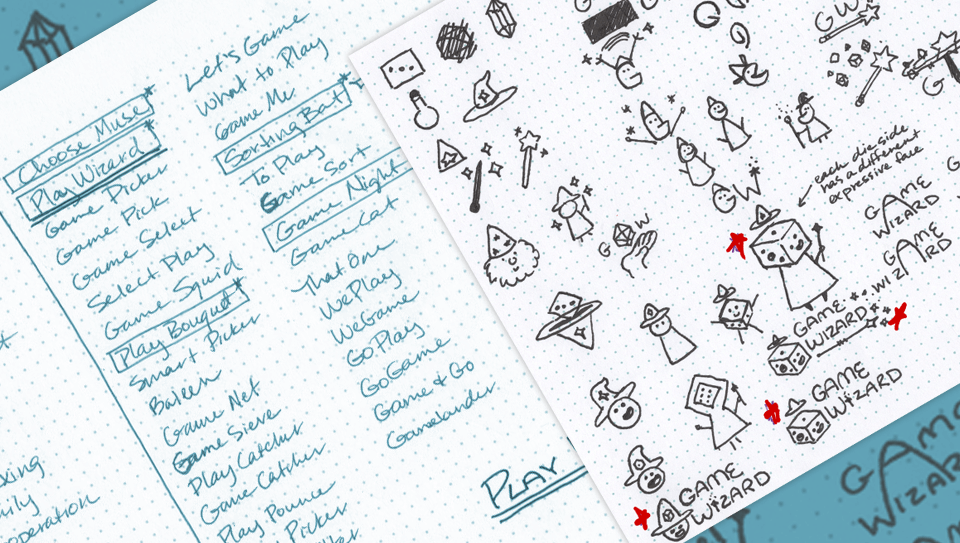 Choose Muse*
Play Wizard*
Game Picker
Game Pick
Game Select
Select Play
Game Squid
Play Bouquet*
Smart Picker
Baleen
Game Net
Game Sieve
Play Catcher
Game Catcher
Play Pounce
Picker
Let's Game
What to Play
Game Me
Sorting Bat*
To Play
Game Sort
Game Night
Game Cat
That One
WePlay
WeGame
Go Play
GoGame
Game & Go
Gamelander
Play
ily
operation
GW
G
G
each die side
has a different
expressive face
GW
GAME
WIZARD
GAME
WIZARD
G W
GAME
WIZARD
GAME
WIZARD
GAME
WIZARD
GAME
WIZARD